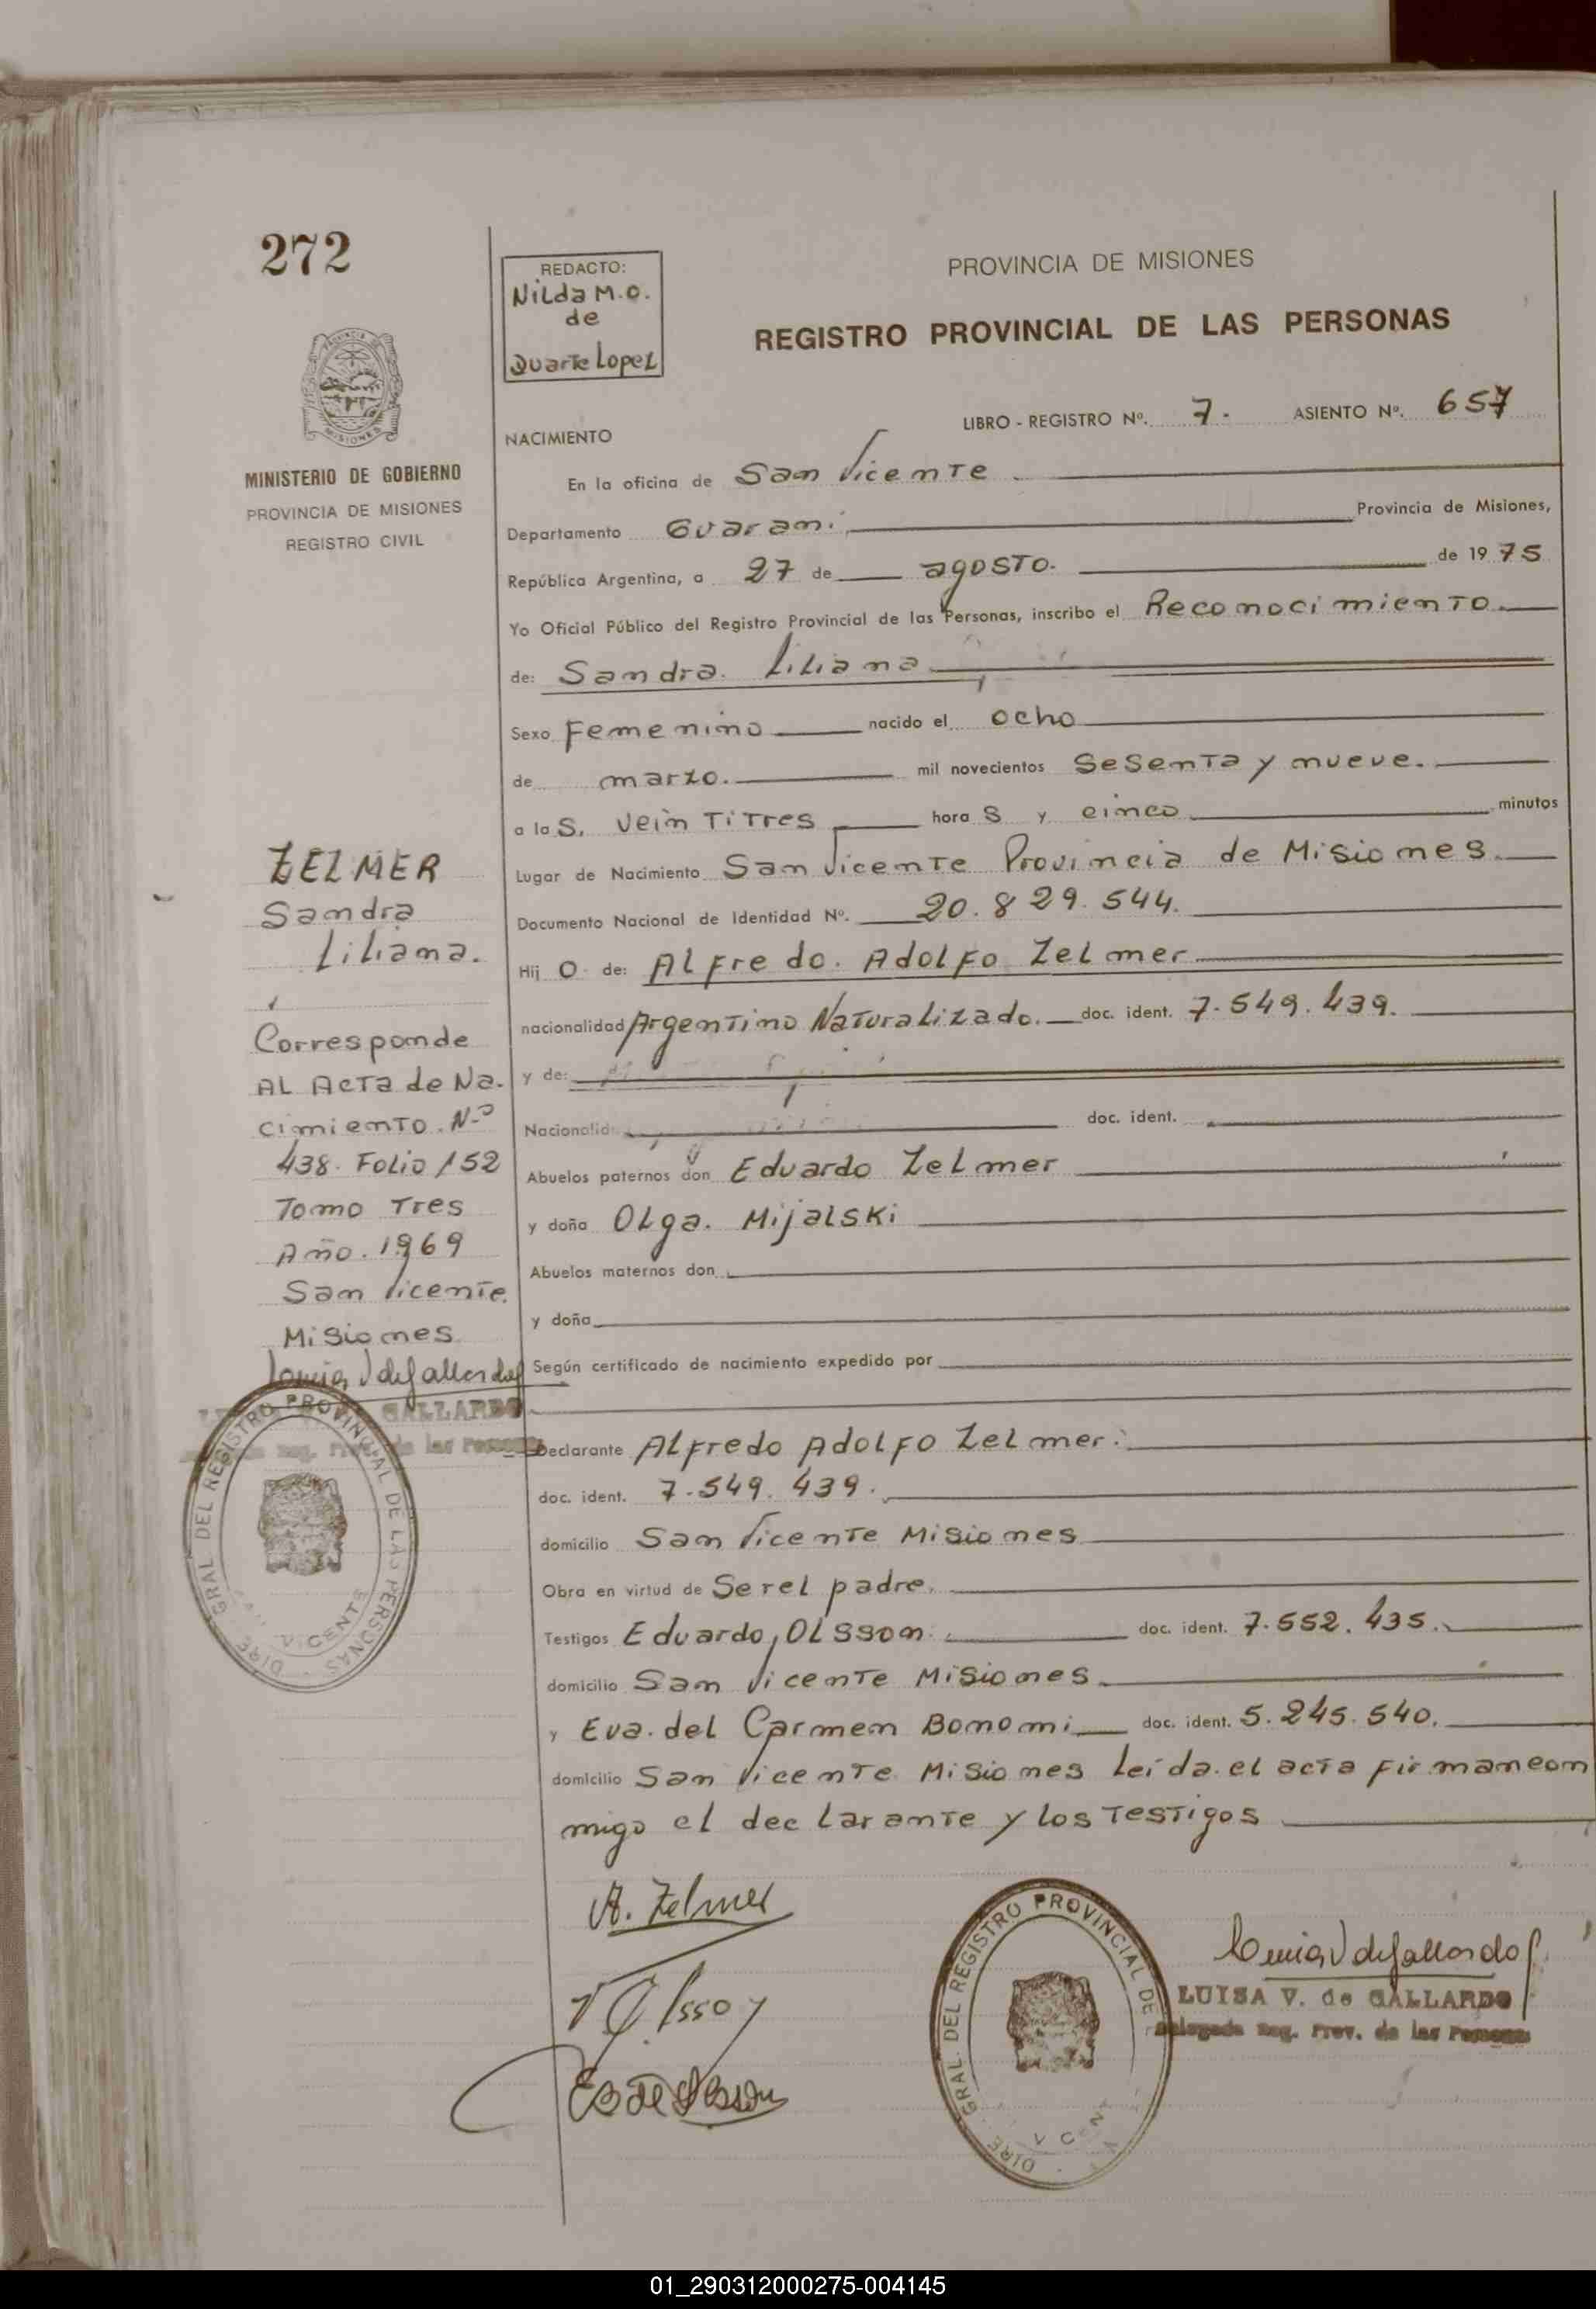 272
REDACTO:
Nilda M.O.
de
Duarte Lopez
PROVINCIA DE MISIONES
REGISTRO PROVINCIAL DE LAS PERSONAS
LIBRO - REGISTRO Nº. 7.- ASIENTO Nº. 657
MISIONES
MINISTERIO DE GOBIERNO
PROVINCIA DE MISIONES
REGISTRO CIVIL
NACIMIENTO
En la oficina de San Vicente
Departamento Guarani Provincia de Misiones,
República Argentina, a 27 de agosto. de 1975
Yo Oficial Público del Registro Provincial de las Personas, inscribo el Reconocimiento.
de: Sandra. Liliana
Sexo Femenino nacido el ocho
de marzo. mil novecientos sesenta y nueve.
a las. veintitres horas y cinco minutos
Lugar de Nacimiento San Vicente Provincia de Misiones.
Documento Nacional de Identidad Nº. 20.829.544.
Hijo de: Alfredo. Adolfo Zelmer
nacionalidad Argentino Naturalizado. doc. ident. 7.549.439.
y de:
Nacionalid doc. ident.
Abuelos paternos don Eduardo Zelmer
y doña Olga. Mijalski
Abuelos maternos don
y doña
Según certificado de nacimiento expedido por
Declarante Alfredo Adolfo Zelmer.
doc. ident. 7.549.439.
domicilio San Vicente Misiones
Obra en virtud de Ser el padre.
Testigos Eduardo, Olsson. doc. ident. 7.552.435.
domicilio San Vicente Misiones.
y Eva. del Carmen Bonomi doc. ident. 5.245.540.
domicilio San Vicente Misiones Leída el acta firman con
migo el declarante y los testigos
ZELMER
Sandra
Liliana.
Corresponde
AL Acta de Na.
cimiento. Nº
438. Folio 152
Tomo Tres
Año. 1969
San Vicente.
Misiones
Luisa V de Gallardo
GALLARDO
Reg. Prov. de las Personas
DIRE. GRAL. DEL REGISTRO PROVINCIAL DE LAS PERSONAS
VICENTE
A. Zelmer
Olsson
E B de Olsson
DIRE. GRAL. DEL REGISTRO PROVINCIAL DE
Luisa V de Gallardo
LUISA V. de GALLARDO
Delegada Reg. Prov. de las Personas
01_290312000275-004145